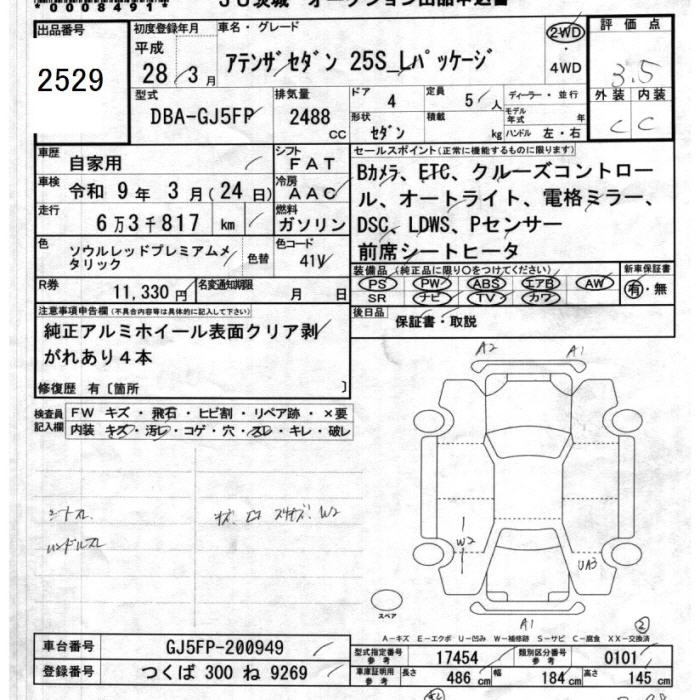 *0008491*
JU茨城 オークション出品申込書
出品番号
2529
初度登録年月
平成
28 / 3 月
車名・グレード
アテンザセダン 25S_Lパッケージ
2WD
・
4WD
評価点
3.5
外装 内装
C C
型式
DBA-GJ5FP
排気量
2488
CC
ドア
4
定員
5 人
ディーラー・並行
形状
セダン
積載
kg
モデル年式
年
ハンドル 左・右
車歴
自家用
シフト
FAT
車検
令和 9 年 3 月 ( 24 日 )
冷房
AAC
走行
6 万 3 千 817 km
燃料
ガソリン
色
ソウルレッドプレミアムメタリック
色替
色コード
41V
R券
11,330 円
名変通知期限
月 日
セールスポイント(正常に機能するものに限ります。)
Bカメラ、ETC、クルーズコントロー
ル、オートライト、電格ミラー、
DSC、LDWS、Pセンサー
前席シートヒータ
装備品(純正品に限り○をつけてください)
PS PW ABS エアB AW
SR ナビ TV カワ
新車保証書
有・無
後日品
保証書・取説
注意事項申告欄(不具合内容等は具体的に記入して下さい)
純正アルミホイール表面クリア剥
がれあり4本
修復歴 有〔箇所 〕
検査員記入欄
FW キズ・飛石・ヒビ割・リペア跡・×要
内装 キズ・汚レ・コゲ・穴・スレ・キレ・破レ
シートスレ
ハンドルスレ
A2 A1
W2
UA3
スペア
A1
2
A-キズ E-エクボ U-凹み W-補修跡 S-サビ C-腐食 XX-交換済
車台番号
GJ5FP-200949
登録番号
つくば 300 ね 9269
型式指定番号
参考
17454
類別区分番号
参考
0101
車庫証明用
参考
長さ
486 cm
幅
184 cm
高さ
145 cm